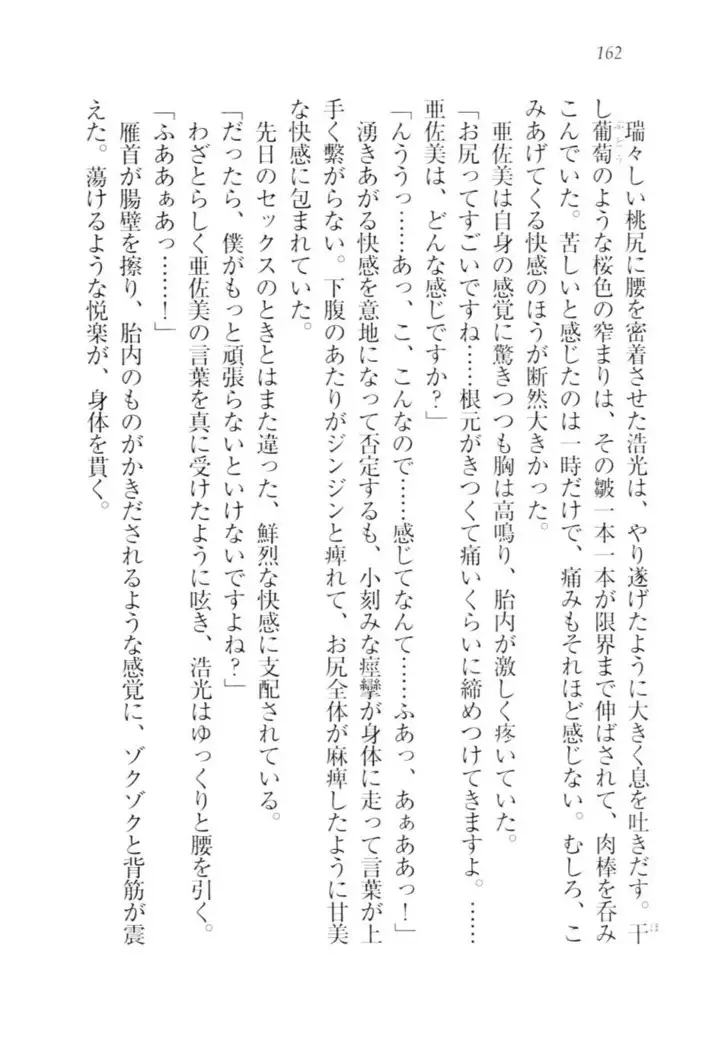 162
瑞々しい桃尻に腰を密着させた浩光は、やり遂げたように大きく息を吐きだす。干
し葡萄のような桜色の窄まりは、その皺一本一本が限界まで伸ばされて、肉棒を呑み
こんでいた。苦しいと感じたのは一時だけで、痛みもそれほど感じない。むしろ、こ
みあげてくる快感のほうが断然大きかった。
亜佐美は自身の感覚に驚きつつも胸は高鳴り、胎内が激しく疼いていた。
「お尻ってすごいですね……根元がきつくて痛いくらいに締めつけてきますよ。……
亜佐美は、どんな感じですか？」
「んううっ……あっ、こ、こんなので……感じてなんて……ふあっ、あぁああっ！」
湧きあがる快感を意地になって否定するも、小刻みな痙攣が身体に走って言葉が上
手く繋がらない。下腹のあたりがジンジンと痺れて、お尻全体が麻痺したように甘美
な快感に包まれていた。
先日のセックスのときとはまた違った、鮮烈な快感に支配されている。
「だったら、僕がもっと頑張らないといけないですよね？」
わざとらしく亜佐美の言葉を真に受けたように呟き、浩光はゆっくりと腰を引く。
「ふああぁあっ……！」
雁首が腸壁を擦り、胎内のものがかきだされるような感覚に、ゾクゾクと背筋が震
えた。蕩けるような悦楽が、身体を貫く。